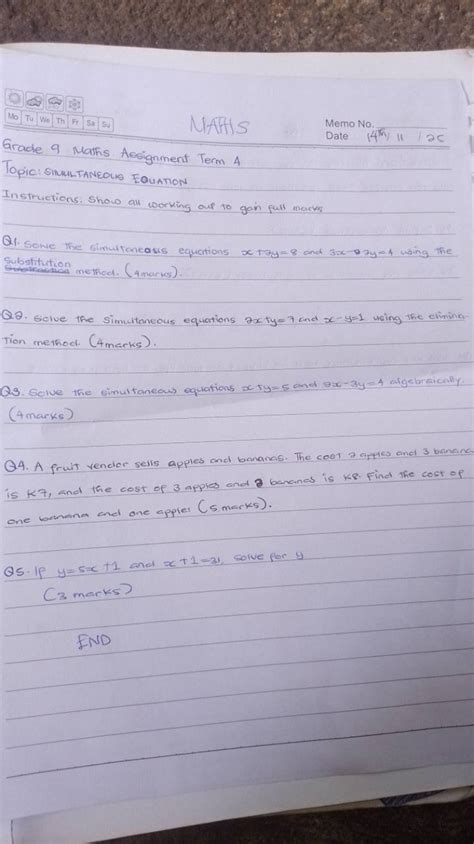 Mo Tu We Th Fr Sa Su
MATHS
Memo No.
Date 14th/11/25
Grade 9 Maths Assignment Term 4
Topic: SIMULTANEOUS EQUATION
Instructions: Show all working out to gain full marks
Q1. Solve the simultaneous equations x+2y=8 and 3x-2y=4 using the
substitution method. (4marks).
Q2. Solve the simultaneous equations 2x+y=7 and x-y=1 using the elimina-
tion method. (4marks).
Q3. Solve the simultaneous equations x+y=5 and 2x-3y=4 algebraically.
(4marks)
Q4. A fruit vender sells apples and bananas. The cost 2 apples and 3 banana
is K7, and the cost of 3 apples and 2 bananas is K8. Find the cost of
one banana and one apple. (5marks).
Q5. If y=5x+1 and x+1=31, solve for y
(3 marks)
END